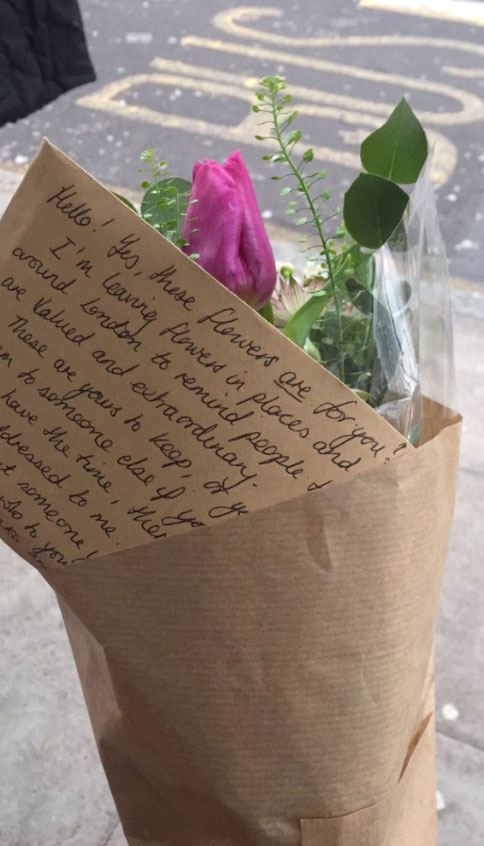 Hello! Yes, these flowers are for you!
I'm leaving flowers in places and
around London to remind people
are valued and extraordinary.
These are yours to keep,
to someone else if
have the time,
to me.
someone!
to you!
BUS